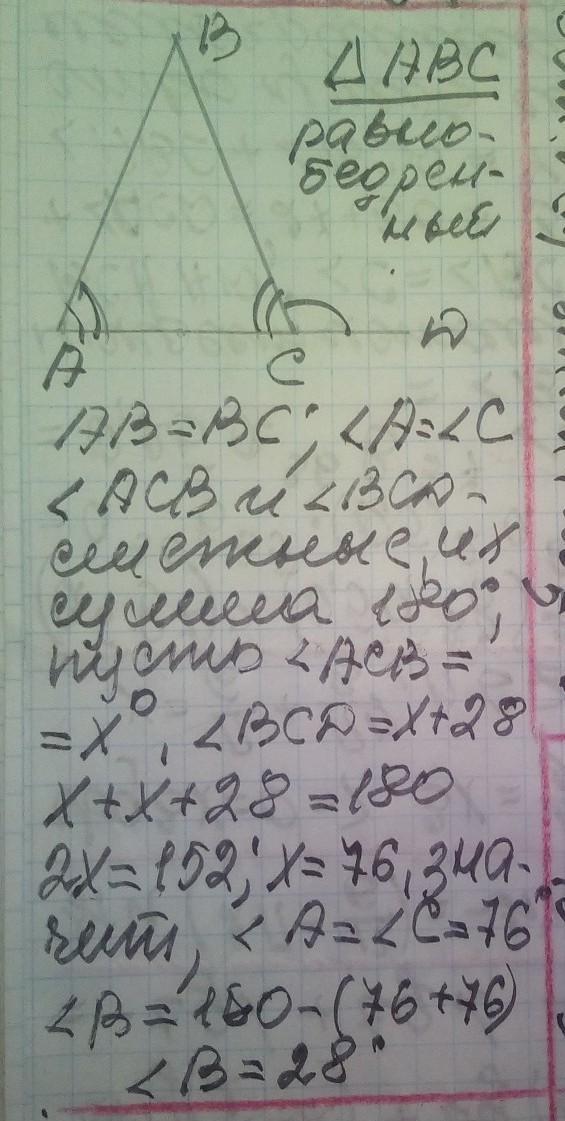 B
△ABC
равно-
бедрен-
ный
A
C
D
AB=BC; ∠A=∠C
∠ACB и ∠BCD-
смежные, их
сумма 180°,
пусть ∠ACB=
=x°, ∠BCD=x+28
x+x+28=180
2x=152; x=76, зна-
чит, ∠A=∠C=76°
∠B=180-(76+76)
∠B=28°